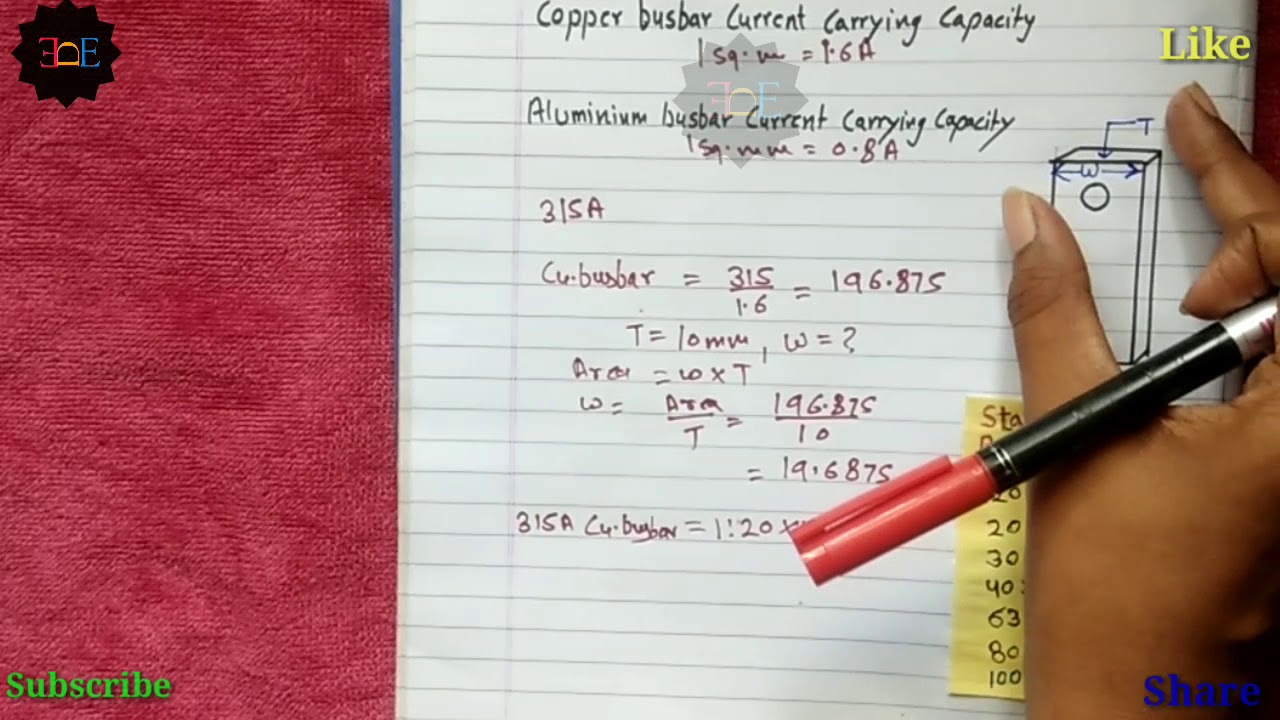 Copper busbar Current Carrying Capacity
1 Sq.m = 1.6A
Aluminium busbar Current Carrying Capacity
1 Sq.mm = 0.8A
315A
Cu.busbar = 315/1.6 = 196.875
T = 10mm, W = ?
Area = W x T
W = Area/T = 196.875/10
= 19.6875
315A Cu.busbar = 1:20 x
T
W
Sta
20
20
30
40
63
80
100
EDE
Like
Subscribe
Share